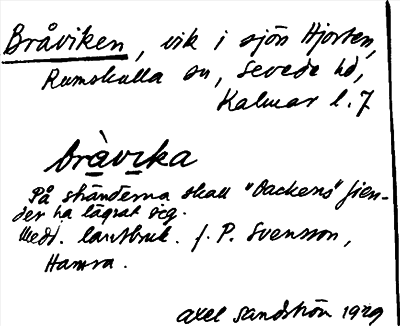 Bråviken, vik i sjön Hjorten,
Rumskulla sn, Sevede hd,
Kalmar l. 7
bràvıka
På stränderna skall "Dackens" fien-
der ha lägrat sig.
Medd. lantbruk. f. P. Svensson,
Hamra.
Axel Sandström 1929